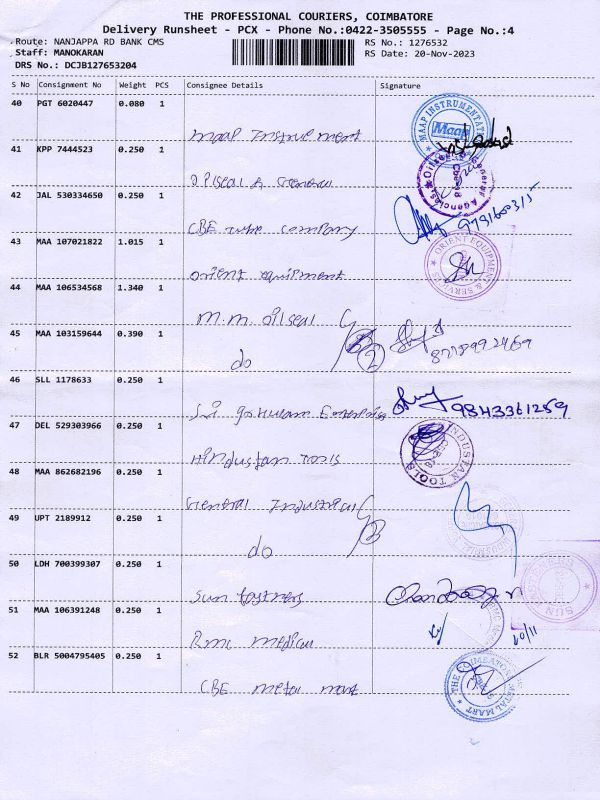 THE PROFESSIONAL COURIERS, COIMBATORE
Delivery Runsheet - PCX - Phone No.:0422-3505555 - Page No.:4
Route: NANJAPPA RD BANK CMS
RS No.: 1276532
Staff: MANOKARAN
RS Date: 20-Nov-2023
DRS No.: DCJB127653204
S No Consignment No Weight PCS Consignee Details Signature
40 PGT 6020447 0.080 1
Maap Instrument
MAAP INSTRUMENTATION
Maap
41 KPP 7444523 0.250 1
Oilseal & General
General Agencies
42 JAL 530334650 0.250 1
CBE tube company
9791600315
43 MAA 107021822 1.015 1
orient equipment
ORIENT EQUIPMENT & SERVICES
44 MAA 106534568 1.340 1
M.M. oilseal
45 MAA 103159644 0.390 1
do
2
46 SLL 1178633 0.250 1
Sri Enterprise
9843361259
47 DEL 529303966 0.250 1
Hindustan Tools
HINDUSTAN TOOLS
48 MAA 862682196 0.250 1
General Industrial
49 UPT 2189912 0.250 1
do
50 LDH 700399307 0.250 1
Sun fastners
SUN FASTENERS
51 MAA 106391248 0.250 1
RMC medical
20/11
52 BLR 5004795405 0.250 1
CBE metal mart
THE COIMBATORE METAL MART